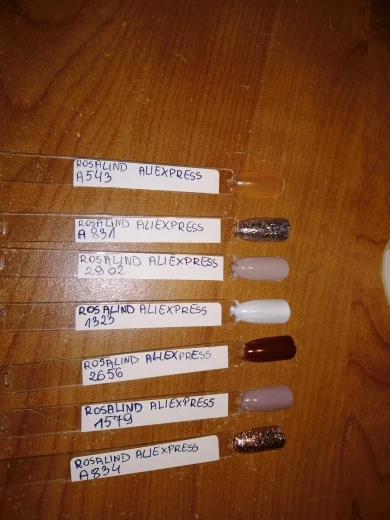 ROSALIND ALIEXPRESS
A543
ROSALIND ALIEXPRESS
A831
ROSALIND ALIEXPRESS
2902
ROSALIND ALIEXPRESS
1323
ROSALIND ALIEXPRESS
2656
ROSALIND ALIEXPRESS
1579
ROSALIND ALIEXPRESS
A834